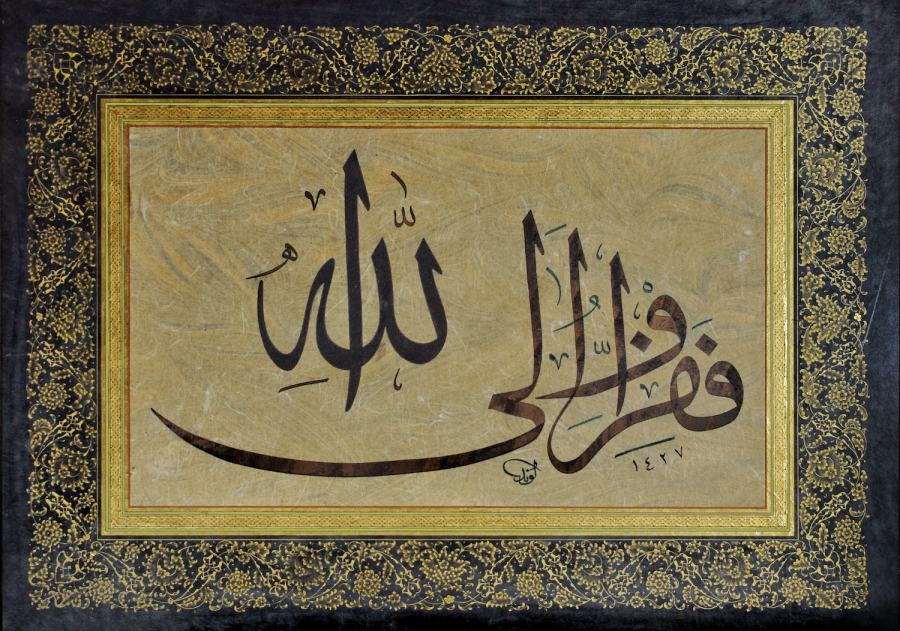 فَفِرُّوا إِلَى اللَّهِ
١٤٢٧